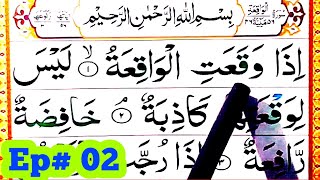 بِسْمِ اللهِ الرَّحْمٰنِ الرَّحِيْمِ
اِذَا وَقَعَتِ الْوَاقِعَةُ ۙ ١ لَيْسَ
لِوَقْعَتِهَا كَاذِبَةٌ ۘ ٢ خَافِضَةٌ
رَّافِعَةٌ ۙ ٣ اِذَا رُجَّتِ
Ep# 02